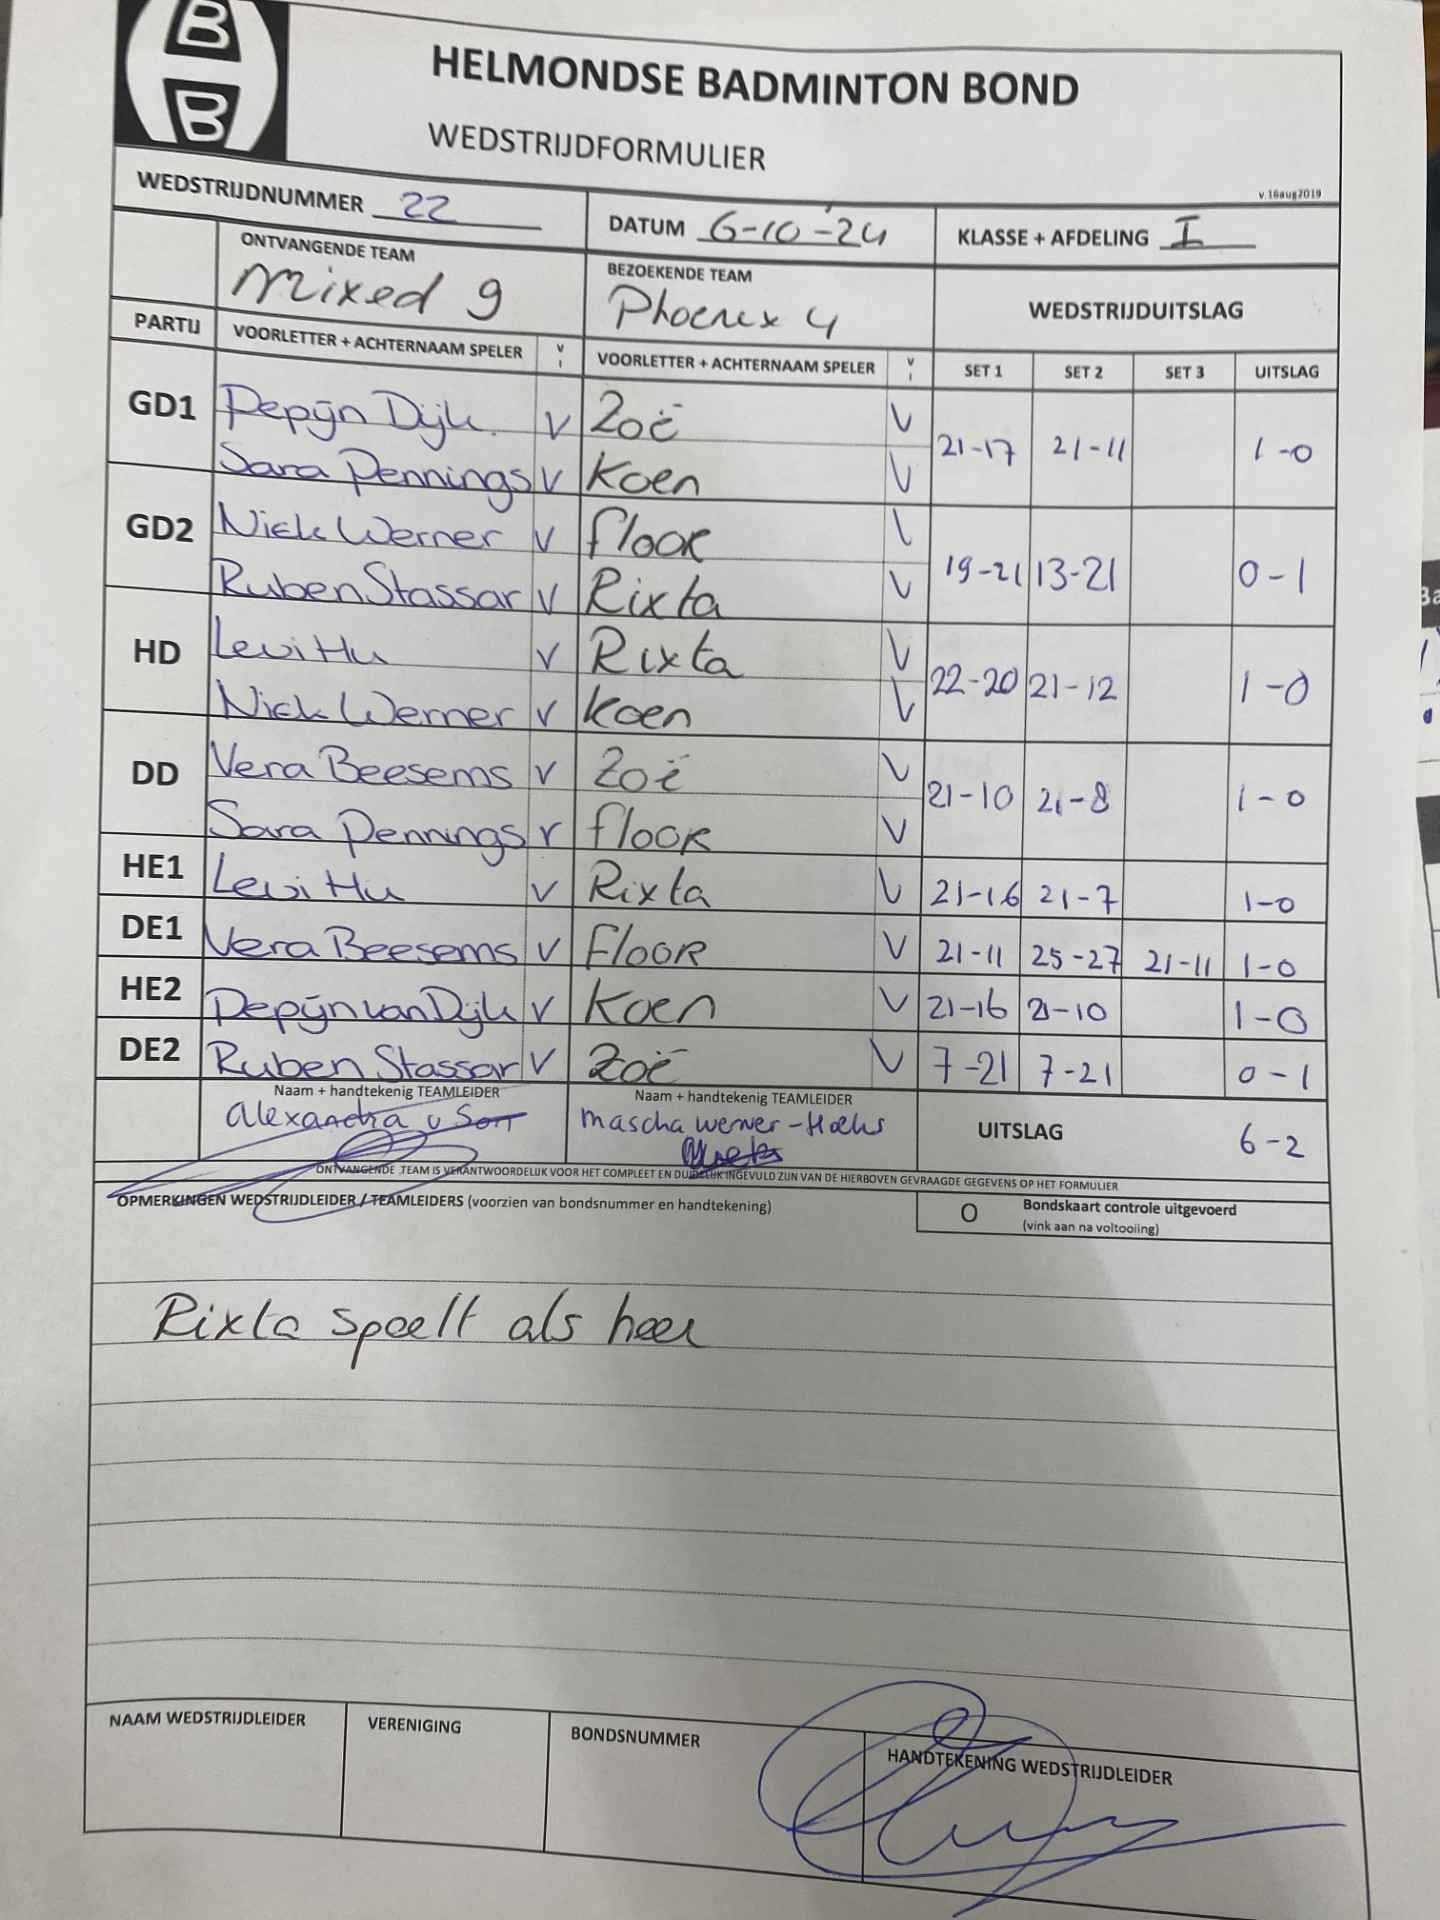 B
B
HELMONDSE BADMINTON BOND
WEDSTRIJDFORMULIER
v.16aug2019
WEDSTRIJDNUMMER 22 DATUM 6-10-'24 KLASSE + AFDELING I
ONTVANGENDE TEAM BEZOEKENDE TEAM
Mixed 9 Phoenix 4 WEDSTRIJDUITSLAG
PARTIJ VOORLETTER + ACHTERNAAM SPELER V I VOORLETTER + ACHTERNAAM SPELER V I SET 1 SET 2 SET 3 UITSLAG
GD1 Pepijn Dijk. V Zoë V 21-17 21-11 1-0
Sara Pennings V Koen V
GD2 Nick Werner V floor V 19-21 13-21 0-1
Ruben Stassar V Rixta V
HD Levi Hu V Rixta V 22-20 21-12 1-0
Nick Werner V Koen V
DD Vera Beesems V Zoë V 21-10 21-8 1-0
Sara Pennings V floor V
HE1 Levi Hu V Rixta V 21-16 21-7 1-0
DE1 Vera Beesems V Floor V 21-11 25-27 21-11 1-0
HE2 Pepijn van Dijk V Koen V 21-16 21-10 1-0
DE2 Ruben Stassar V Zoë V 7-21 7-21 0-1
Naam + handtekenig TEAMLEIDER Naam + handtekenig TEAMLEIDER
Alexandra v mascha werner- UITSLAG 6-2
ONTVANGENDE TEAM IS VERANTWOORDELIJK VOOR HET COMPLEET EN DUIDELIJK INGEVULD ZIJN VAN DE HIERBOVEN GEVRAAGDE GEGEVENS OP HET FORMULIER
OPMERKINGEN WEDSTRIJDLEIDER / TEAMLEIDERS (voorzien van bondsnummer en handtekening) O Bondskaart controle uitgevoerd
(vink aan na voltooiing)
Rixta speelt als heer
NAAM WEDSTRIJDLEIDER VERENIGING BONDSNUMMER HANDTEKENING WEDSTRIJDLEIDER